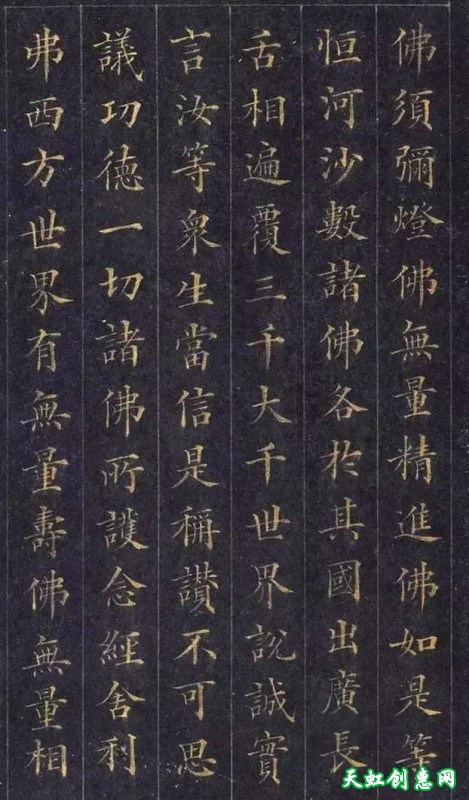 佛須彌燈佛無量精進佛如是等
恒河沙數諸佛各於其國出廣長
舌相遍覆三千大千世界說誠實
言汝等眾生當信是稱讚不可思
議功德一切諸佛所護念經舍利
弗西方世界有無量壽佛無量相
天虹创惠网